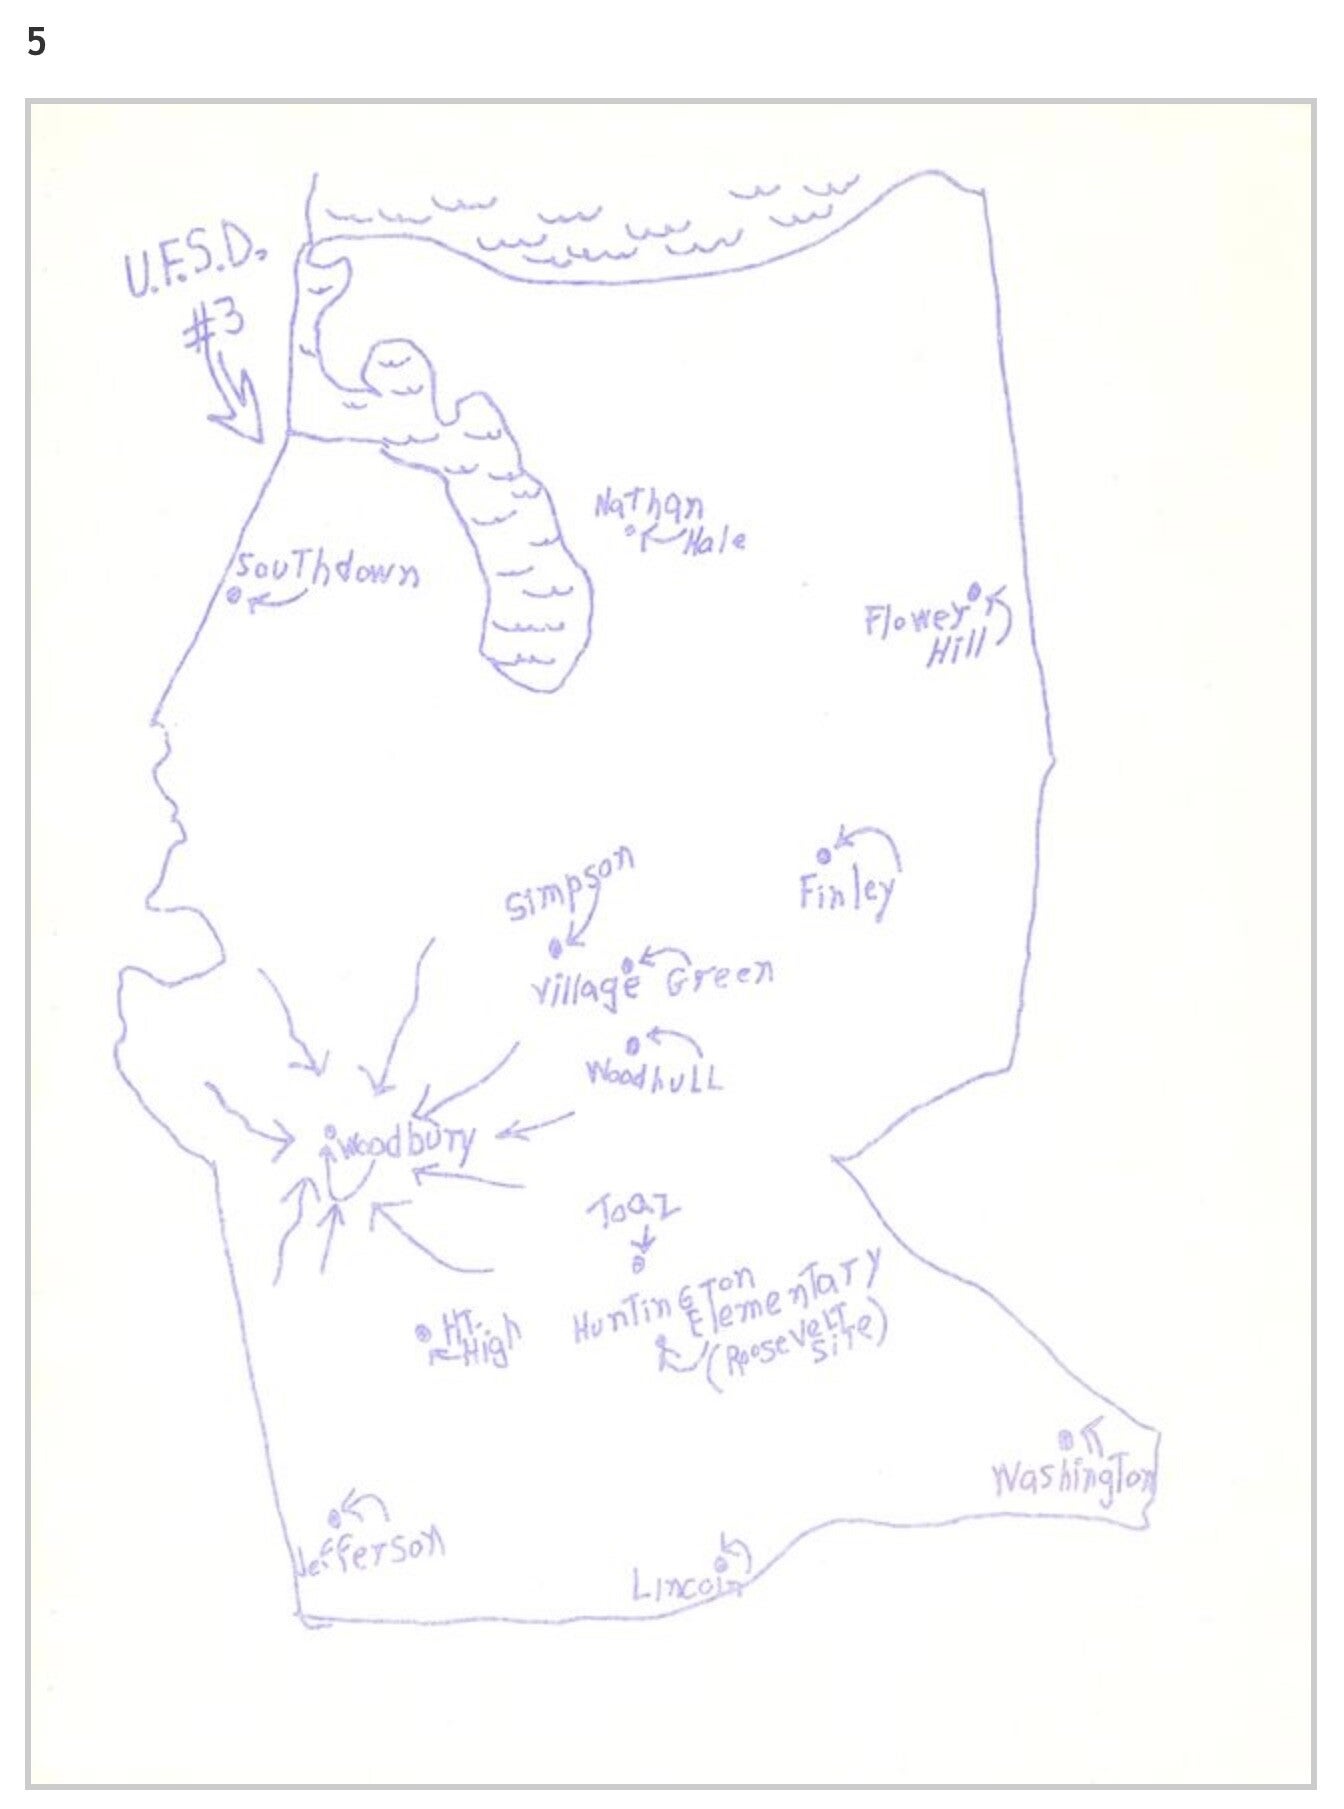 5
U.F.S.D.
#3
Nathan
Hale
Southdown
Flower
Hill
Simpson
Finley
Village Green
Woodhull
Woodbury
Toaz
Huntington
Elementary
(Roosevelt
Site)
HT.
High
Washington
Jefferson
Lincoln